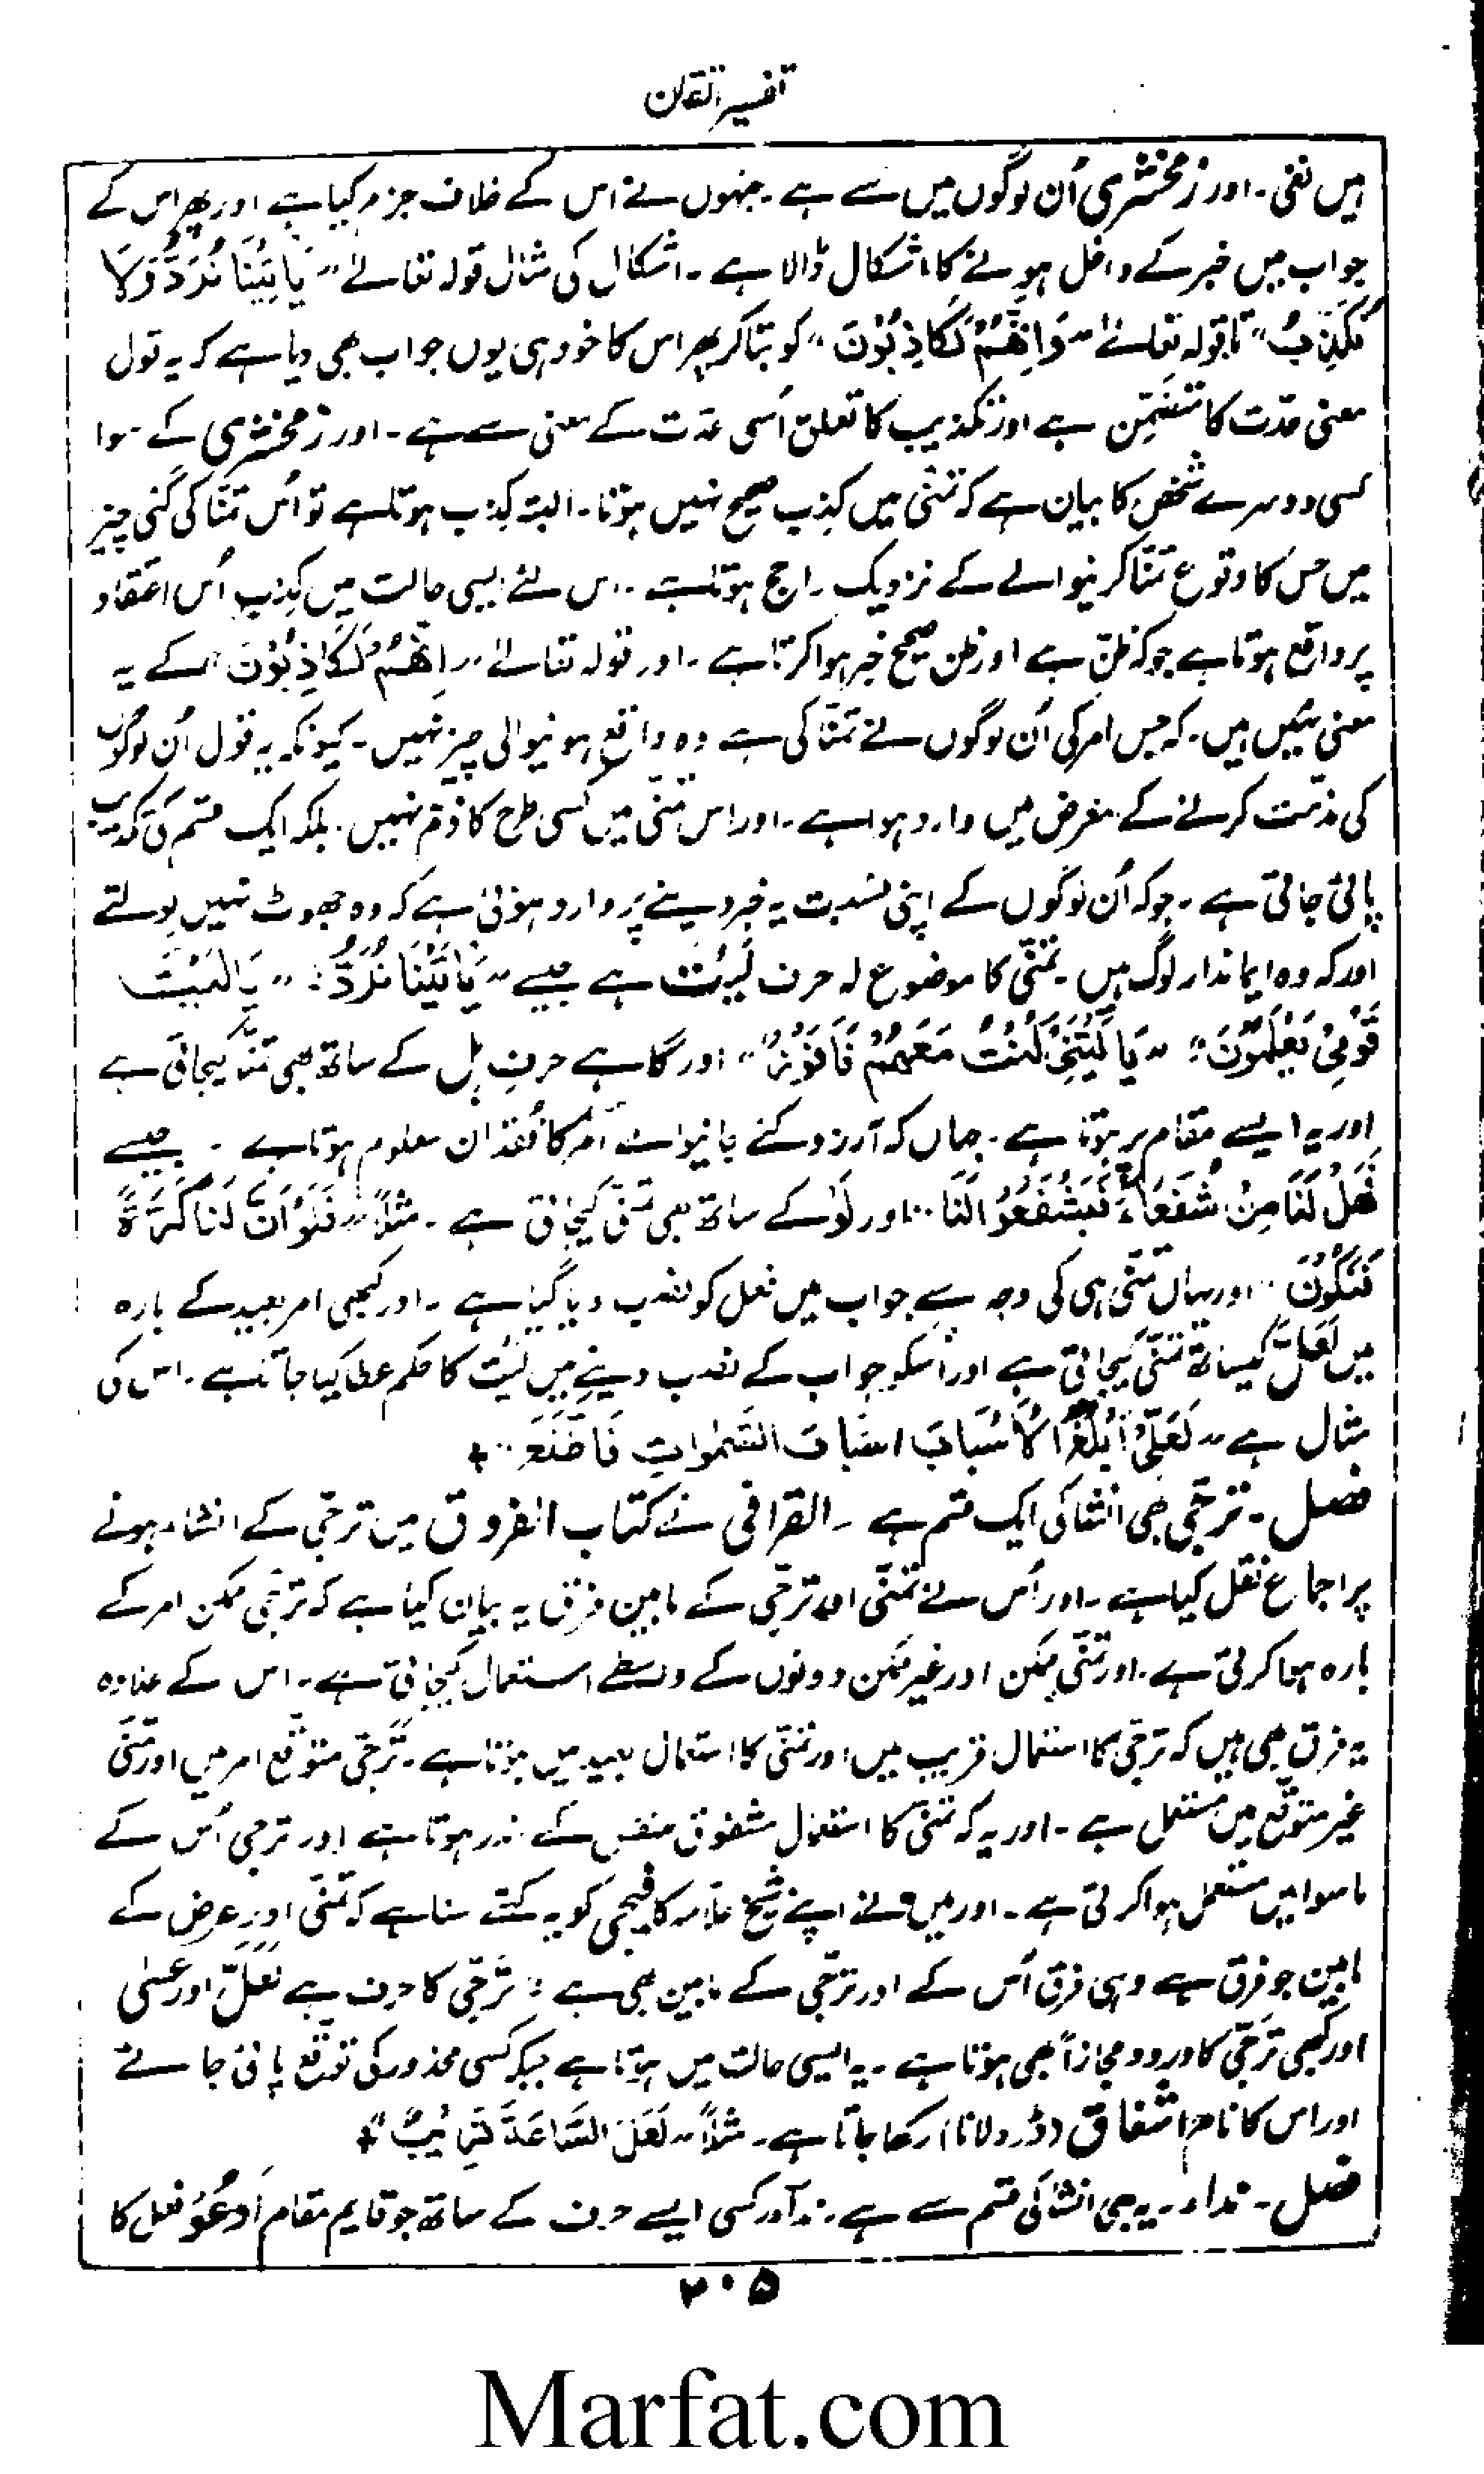 تفسیر اتقان
ہیں نفی۔ اور زمخشری اُن لوگوں میں سے ہے۔ جنہوں نے اس کے خلاف جزم کیا ہے اور پھر اس کے
جواب میں خبر کے داخل ہونے کا اشکال ڈالا ہے۔ اشکال کی مثال قولہ تعالےٰ "یَا لَیْتَنَا نُرَدُّ وَلَا
نُکَذِّبُ" تا قولہ تعالےٰ "وَاِنَّھُمْ لَکَاذِبُوْنَ" کو بتا کر پھر اس کا خود ہی یوں جواب بھی دیا ہے کہ یہ قول
معنی عدّت کا متضمّن ہے اور تکذیب کا تعلق اُسی عدّت کے معنی سے ہے۔ اور زمخشری کے سوا
کسی دوسرے شخص کا بیان ہے کہ تمنّی میں کذب صحیح نہیں ہوتا۔ البتہ کذب ہوتا ہے تو اُس تمنّا کی گئی چیز
میں جس کا وقوع تمنّا کرنیوالے کے نزدیک راجح ہوتا ہے۔ اس لئے ایسی حالت میں کذب اُس اعتقاد
پر واقع ہوتا ہے جو کہ ظنّ ہے اور ظن صحیح خبر ہوا کرتا ہے۔ اور قولہ تعالےٰ "اِنَّھُمْ لَکَاذِبُوْنَ" کے یہ
معنی نہیں ہیں۔ کہ جس امر کی اُن لوگوں نے تمنّا کی ہے وہ واقع ہونیوالی چیز نہیں۔ کیونکہ یہ قول اُن لوگوں
کی مذمّت کرنے کے معرض میں وارد ہوا ہے۔ اور اس تمنّی میں کسی طرح کا ذمّ نہیں۔ بلکہ ایک قسم کی تکذیب
پائی جاتی ہے۔ جو کہ اُن لوگوں کے اپنی نسبت یہ خبر دینے پر وارد ہوئی ہے کہ وہ جھوٹ نہیں بولتے
اور کہ وہ ایماندار لوگ ہیں۔ تمنّی کا موضوع لہ حرف لَیْتَ ہے جیسے "یَا لَیْتَنَا نُرَدُّ" "یَا لَیْتَ
قَوْمِیْ یَعْلَمُوْنَ" "یَا لَیْتَنِیْ کُنْتُ مَعَھُمْ فَاَفُوْزَ" اور گاہے حرفِ ہل کے ساتھ بھی تمنّا کیجاتی ہے
اور یہ ایسے مقام پر ہوتا ہے۔ جہاں کہ آرزو کئے جانیوالے امر کا فقدان معلوم ہوتا ہے۔ جیسے
فَھَلْ لَنَا مِنْ شُفَعَاءَ فَیَشْفَعُوْا لَنَا" اور لَوْ کے ساتھ بھی تمنّی کیجاتی ہے۔ مثلاً "فَلَوْ اَنَّ لَنَا کَرَّۃً
فَنَکُوْنَ" اور یہاں تمنّی ہی کی وجہ سے جواب میں فعل کو نصب دیا گیا ہے۔ اور کبھی امر بعید کے بارہ
میں لَعَلَّ کیساتھ تمنّی کیجاتی ہے اور اُسکو جواب کے نصب دینے میں لَیْتَ کا حکم عطا کیا جاتا ہے۔ اس کی
مثال ہے "لَعَلِّیْ اَبْلُغُ الْاَسْبَابَ اسْبَابَ السَّمٰوَاتِ فَاَطَّلِعَ"
فصل۔ ترجّی بھی انشا کی ایک قسم ہے۔ القرافی نے کتاب الفروق میں ترجّی کے انشاء ہونے
پر اجماع نقل کیا ہے۔ اور اُس نے تمنّی اور ترجّی کے مابین فرق یہ بیان کیا ہے کہ ترجّی ممکن امر کے
بارہ ہوا کرتی ہے۔ اور تمنّی ممکن اور غیر ممکن دونوں کے واسطے استعمال کیجاتی ہے۔ اس کے علاوہ
یہ فرق بھی ہیں کہ ترجّی کا استعمال قریب میں اور تمنّی کا استعمال بعید میں ہوتا ہے۔ ترجّی متوقّع امر میں اور تمنّی
غیر متوقّع میں مستعمل ہے۔ اور یہ کہ تمنّی کا استعمال مشفوق نفس کے اندر ہوتا ہے اور ترجی اُس کے
ماسوا میں مستعمل ہوا کرتی ہے۔ اور میں نے اپنے شیخ علّامہ کافیجی کو یہ کہتے سنا ہے کہ تمنّی اور عرض کے
مابین جو فرق ہے وہی فرق اُس کے اور ترجّی کے مابین بھی ہے؛ ترجّی کا حرف ہے لَعَلَّ اور عَسٰی
اور کبھی ترجّی کا ورود مجازاً بھی ہوتا ہے۔ یہ ایسی حالت میں ہوتا ہے جبکہ کسی محذور کی توقّع پائی جائے
اور اس کا نام اشفاق (ڈر دلانا) رکھا جاتا ہے۔ مثلاً "لَعَلَّ السَّاعَۃَ قَرِیْبٌ"
فصل۔ نداء۔ یہ بھی انشا کی قسم سے ہے۔ ندا اور کسی ایسے حرف کے ساتھ جو قایم مقام اَدْعُوْ فعل کا
۲۰۵
Marfat.com